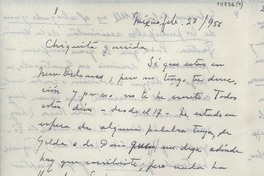 1
Chiquita querida
Sé que estás en
New Orleans, pero no tengo tu direc-
ción y por eso no te he escrito. Todos
estos días - desde el 17. He estado en
espera de alguna palabra tuya, de
Gilda o de Doris que me diga adónde
hay que escribirte, pero nada ha